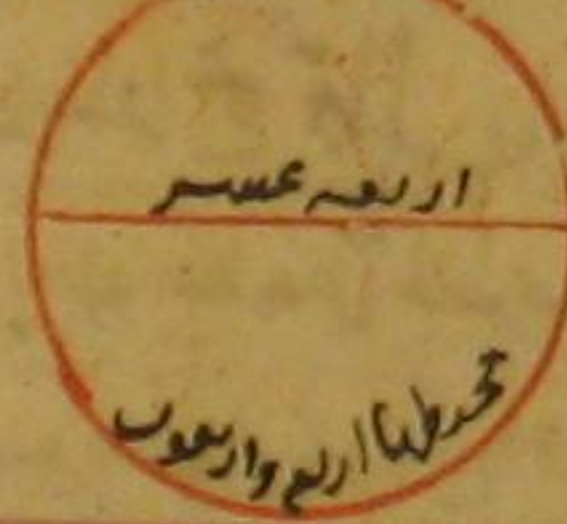 اربعه عشر
محيطها اربع واربعون